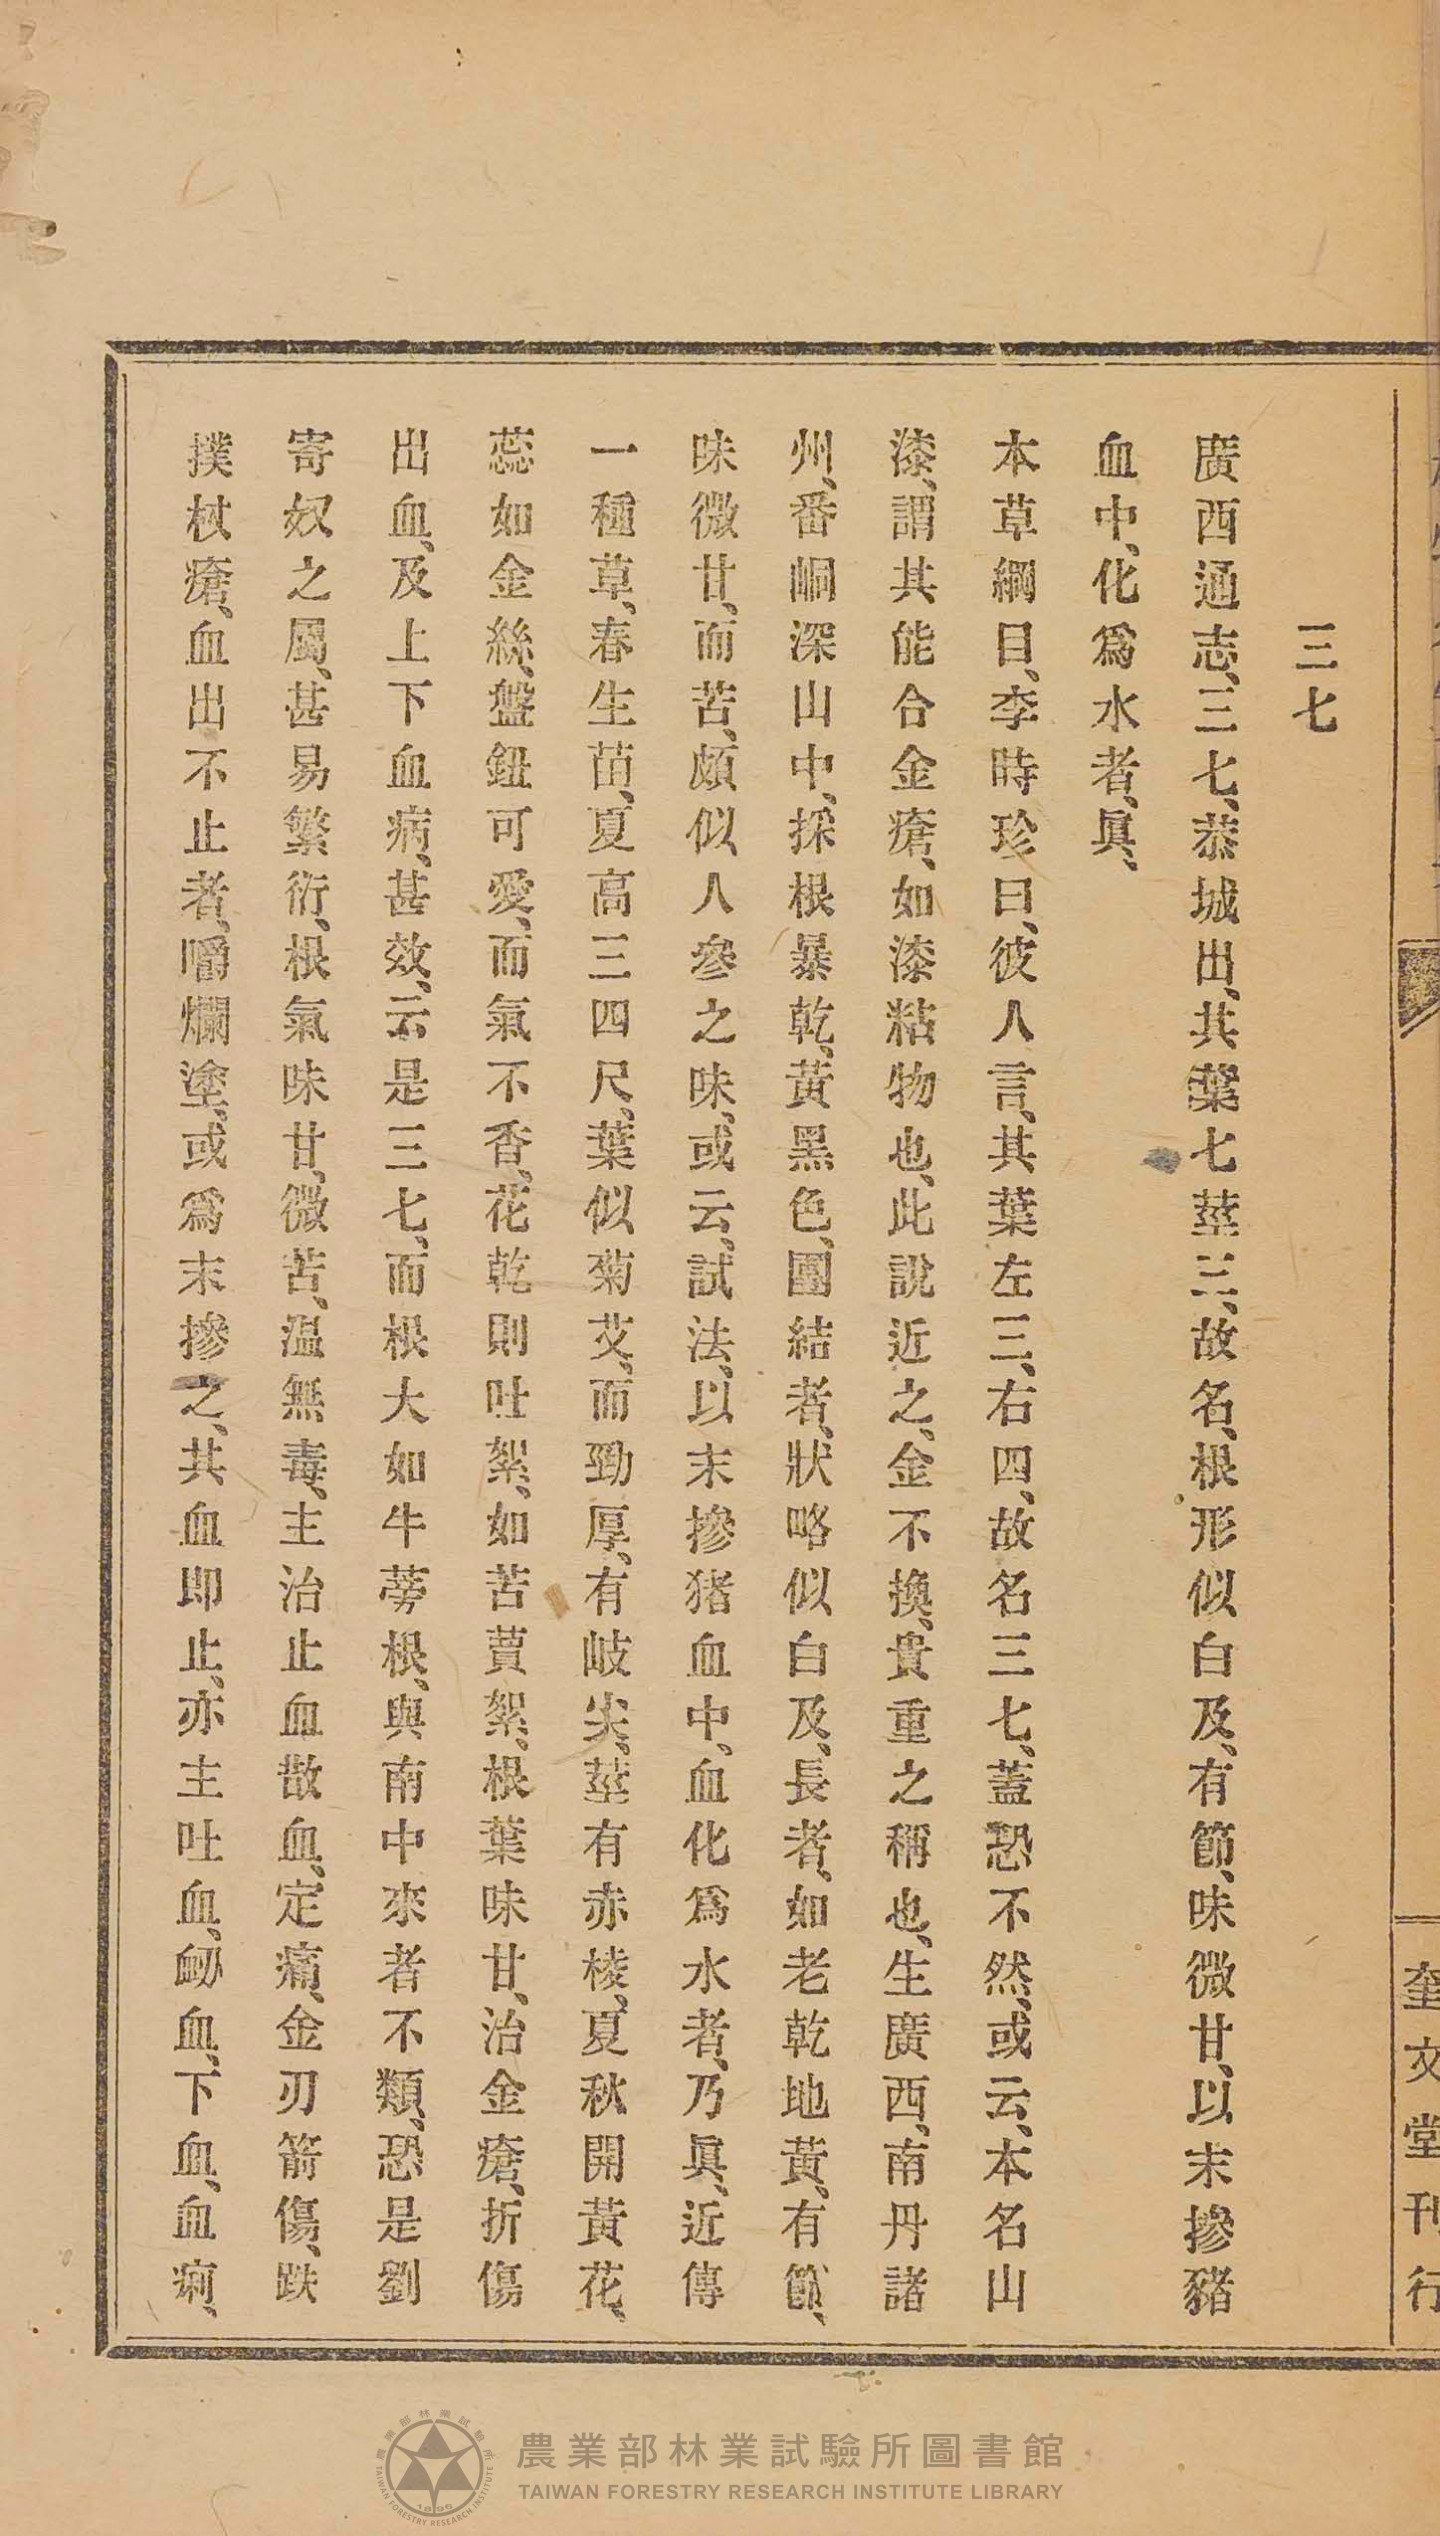 三七
廣西通志、三七、恭城出、共葉七莖三、故名、根形似白及、有節、味微甘、以末摻豬
血中、化爲水者、眞、
本草綱目、李時珍曰、彼人言、其葉左三、右四、故名三七、蓋恐不然、或云、本名山
漆、謂其能合金瘡、如漆粘物也、此說近之、金不換、貴重之稱也、生廣西、南丹諸
州、番峒深山中、採根暴乾、黃黑色、團結者、狀略似白及、長者、如老乾地黃、有節、
味微甘、而苦、頗似人參之味、或云、試法、以末摻猪血中、血化爲水者、乃眞、近傳
一種草、春生苗、夏高三四尺、葉似菊艾、而勁厚、有岐尖、莖有赤棱、夏秋開黃花、
蕊如金絲、盤鈕可愛、而氣不香、花乾則吐絮、如苦蕒絮、根葉味甘、治金瘡、折傷
出血、及上下血病、甚效、云是三七、而根大如牛蒡根、與南中來者不類、恐是劉
寄奴之屬、甚易繁衍、根氣味甘、微苦、溫無毒、主治止血散血、定痛、金刃箭傷、跌
撲杖瘡、血出不止者、嚼爛塗、或爲末摻之、共血即止、亦主吐血、衂血、下血、血痢、
奎文堂刊行
農業部林業試驗所圖書館
TAIWAN FORESTRY RESEARCH INSTITUTE LIBRARY
農業部林業試驗所
TAIWAN FORESTRY RESEARCH INSTITUTE
1895